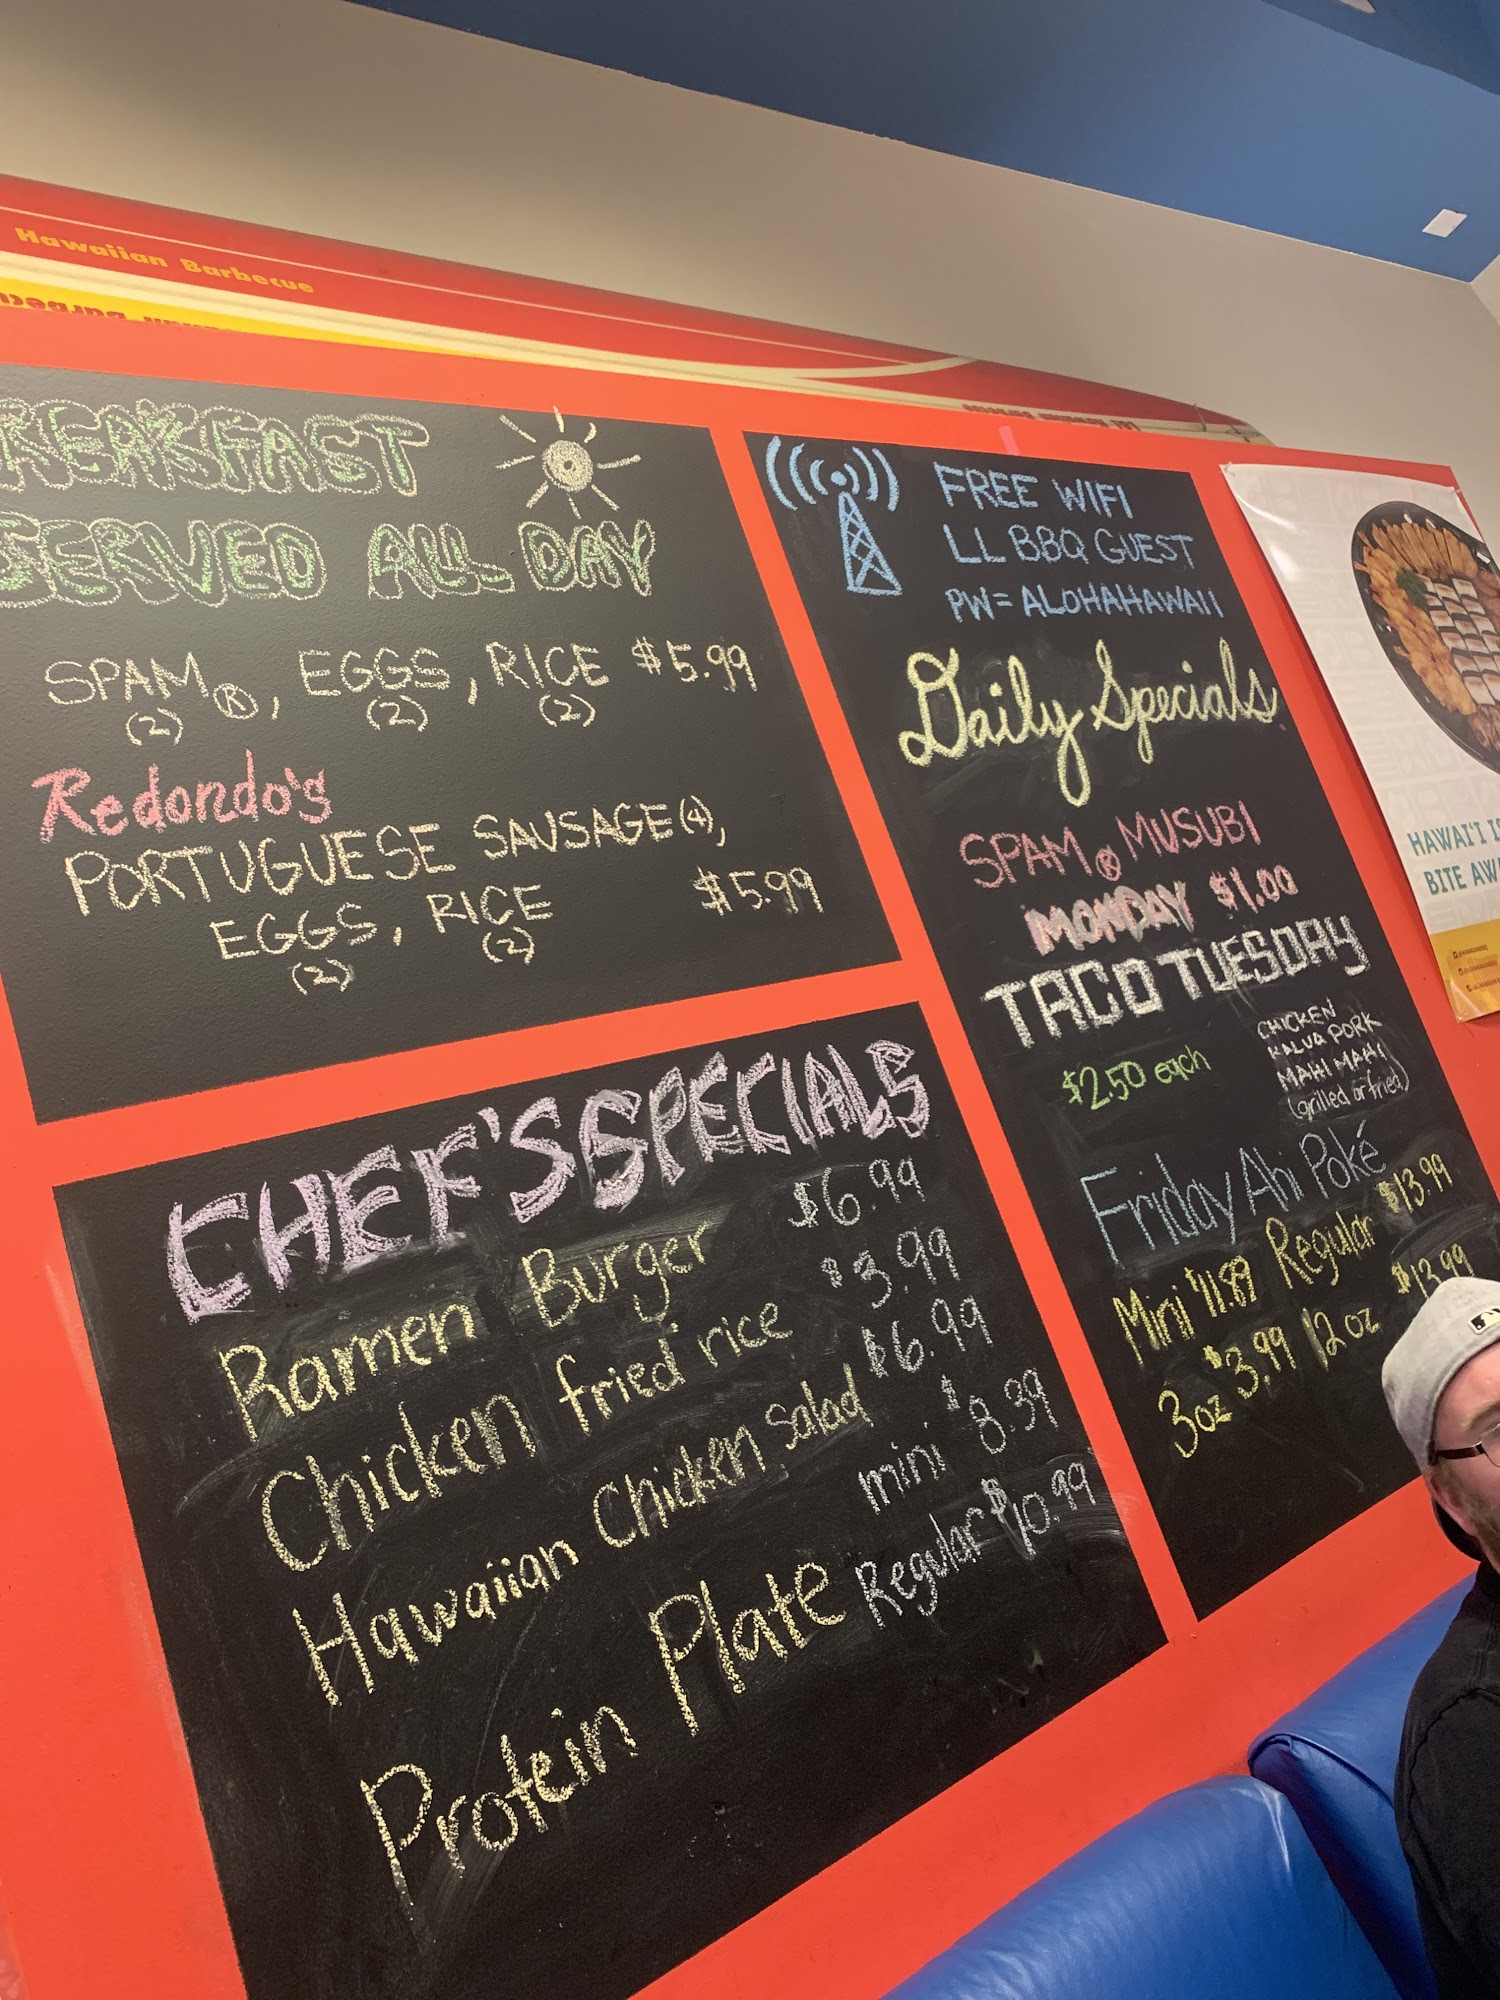 Hawaiian Barbecue
BREAKFAST
SERVED ALL DAY
SPAM®, EGGS, RICE $5.99
(2) (2) (2)
Redondo's
PORTUGUESE SAUSAGE (4),
EGGS, RICE $5.99
(2) (2)
CHEF'S SPECIALS
Ramen Burger $6.99
Chicken fried rice $3.99
Hawaiian Chicken Salad $6.99
mini $8.39
Protein Plate Regular $10.99
FREE WIFI
LL BBQ GUEST
PW= ALOHAHAWAII
Daily Specials
SPAM® MUSUBI
MONDAY $1.00
TACO TUESDAY
$2.50 each
CHICKEN
KALUA PORK
MAHI MAHI
(grilled or fried)
Friday Ahi Poké
Mini $11.89 Regular $13.99
3oz $3.99 12oz $13.99
HAWAI'I IS
BITE AWA